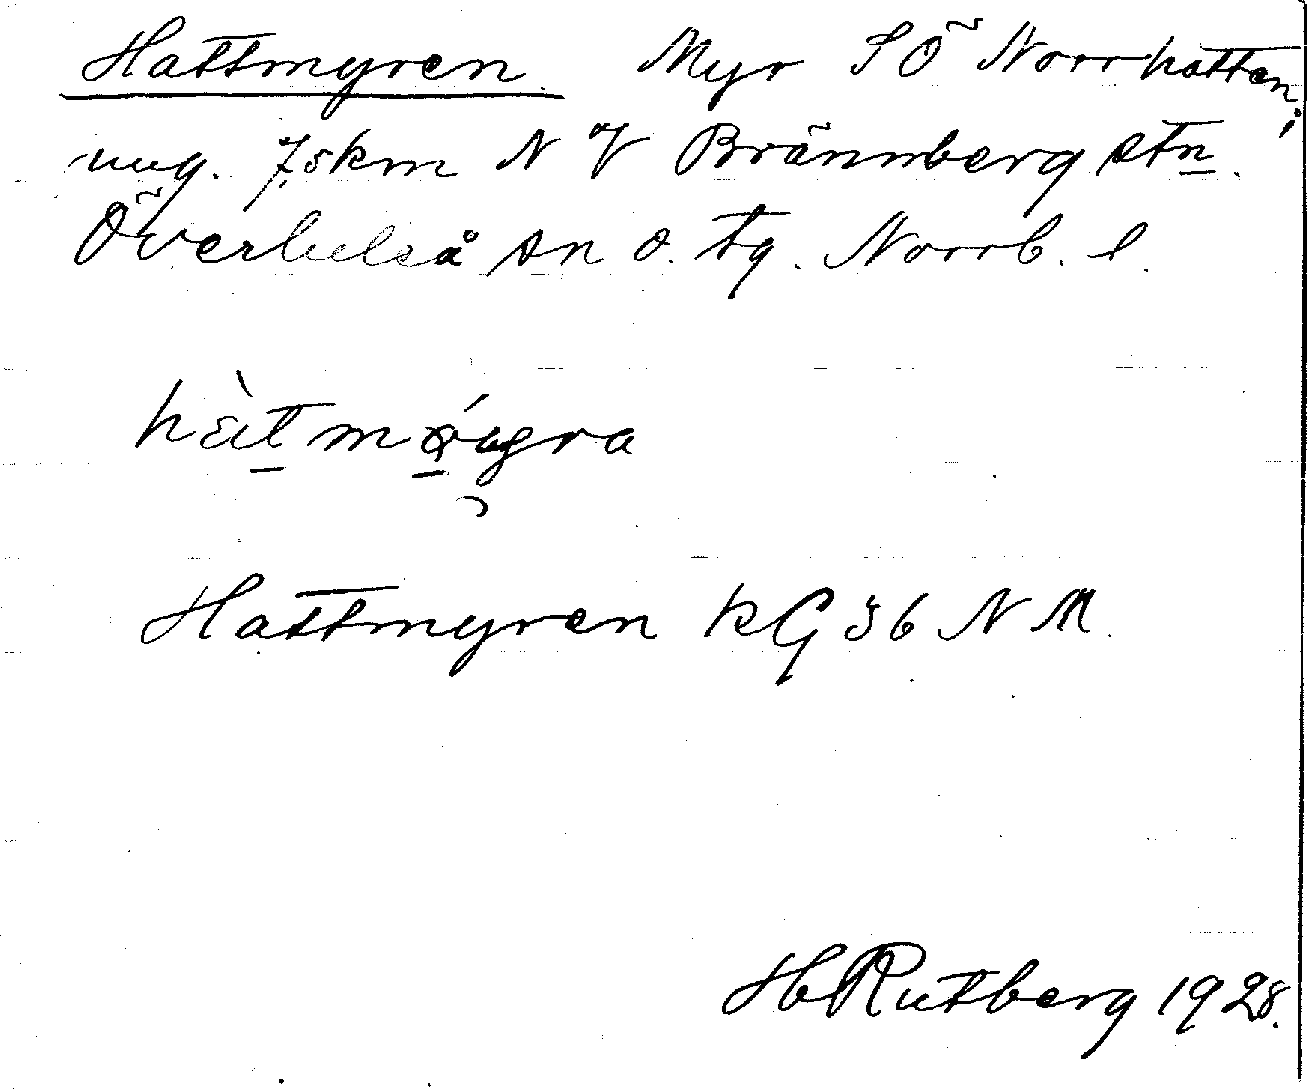 Hattmyren Myr SÖ Norrhatten,
ung. 7,5 km NV Brännberg stn.
Överluleå sn o. tg. Norrb. l.
Hattmyren KG 36 NM
H Rutberg 1928.